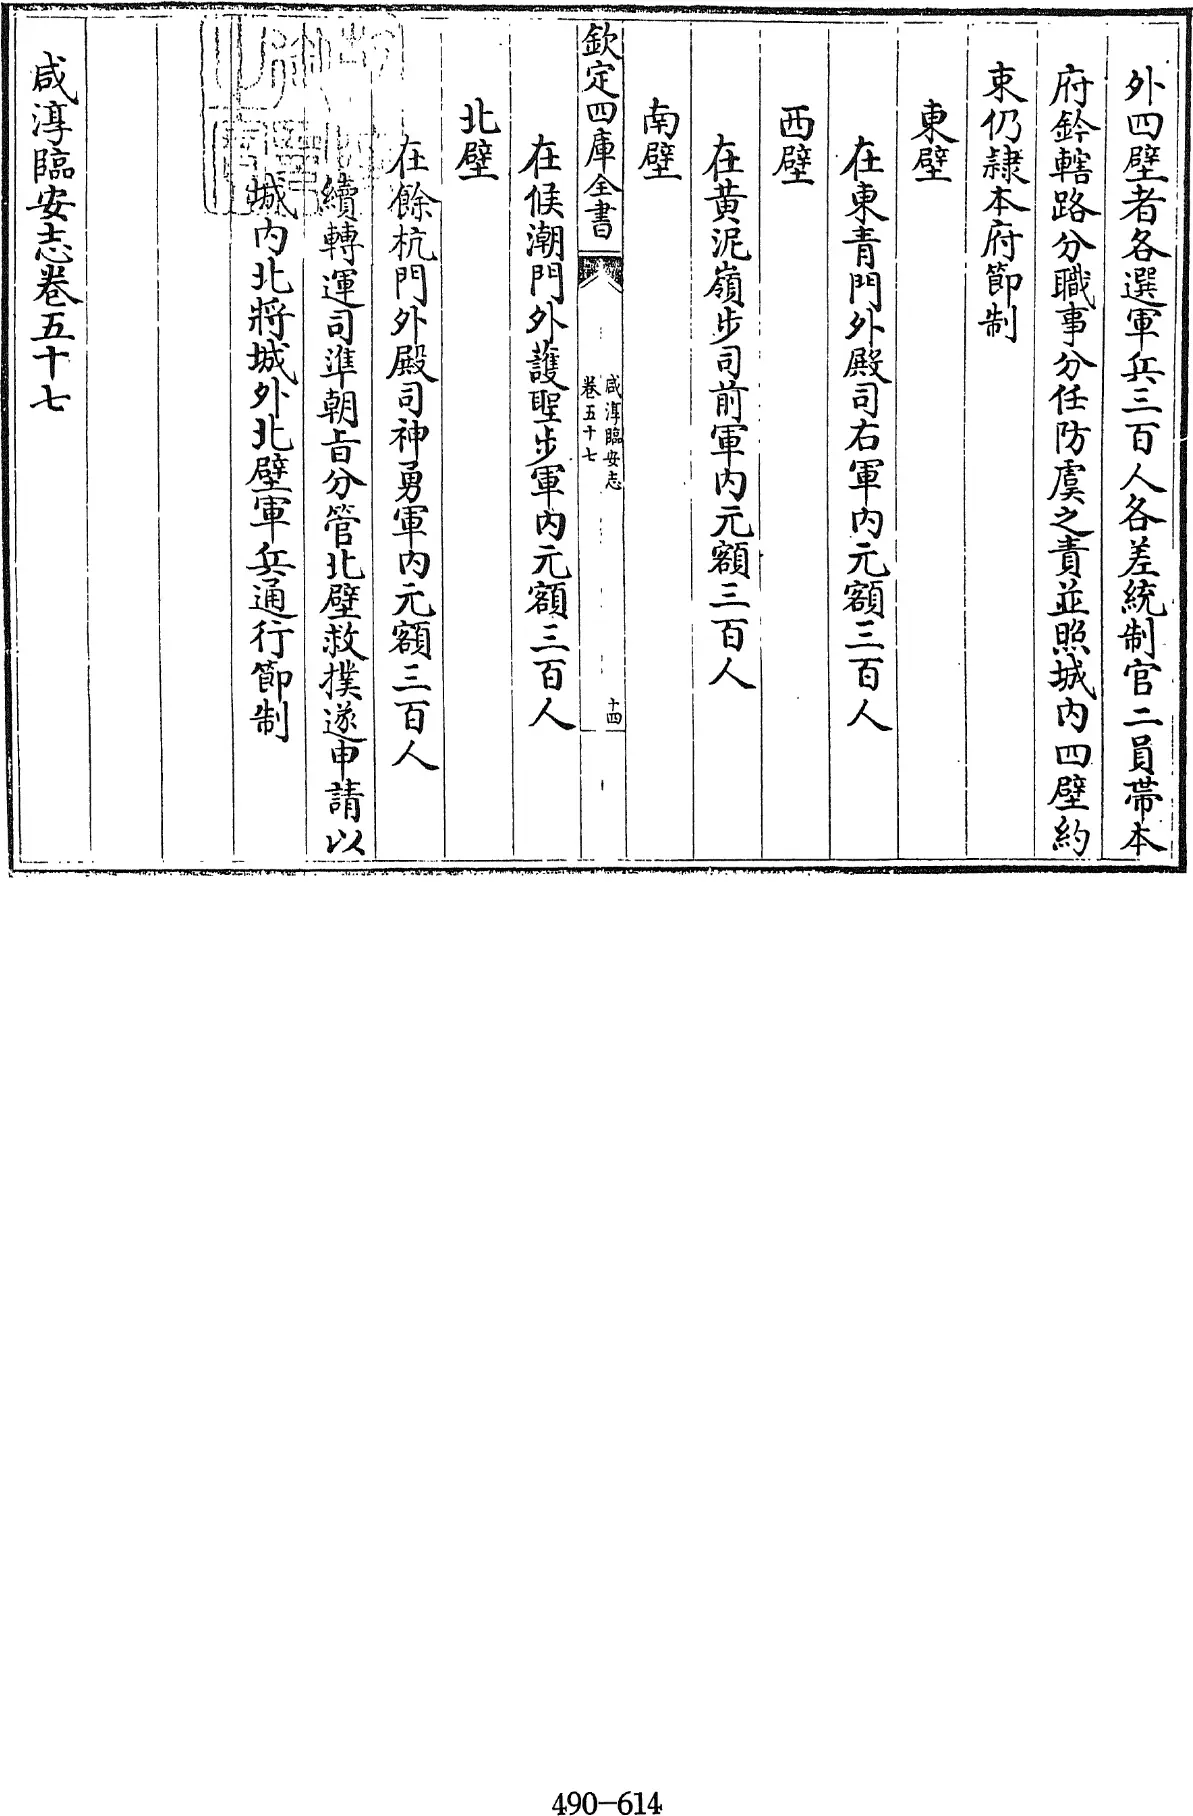 外四壁者各選軍兵三百人各差統制官二員帶本
府鈐轄路分職事分任防虞之責並照城内四壁約
束仍隷本府節制
東壁
在東青門外殿司右軍内元額三百人
西壁
在黄泥嶺步司前軍内元額三百人
南壁
欽定四庫全書
咸淳臨安志
卷五十七
十四
在候潮門外護聖步軍内元額三百人
北壁
在餘杭門外殿司神勇軍内元額三百人
續轉運司準朝旨分管北壁救撲遂申請以
城内北將城外北壁軍兵通行節制
咸淳臨安志卷五十七
490-614